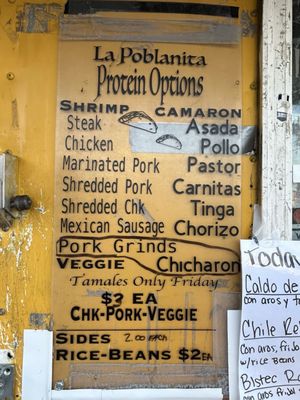 La Poblanita
Protein Options
SHRIMP CAMARON
Steak Asada
Chicken Pollo
Marinated Pork Pastor
Shredded Pork Carnitas
Shredded Chk Tinga
Mexican Sausage Chorizo
Pork Grinds
VEGGIE Chicharon
Tamales Only Friday
$3 EA
CHK-PORK-VEGGIE
SIDES 2.00 EACH
RICE-BEANS $2EA
Today
Caldo de
con arros y
Chile Re
Con arros, frijo
w/rice Beans
Bistec R
con arros frijol